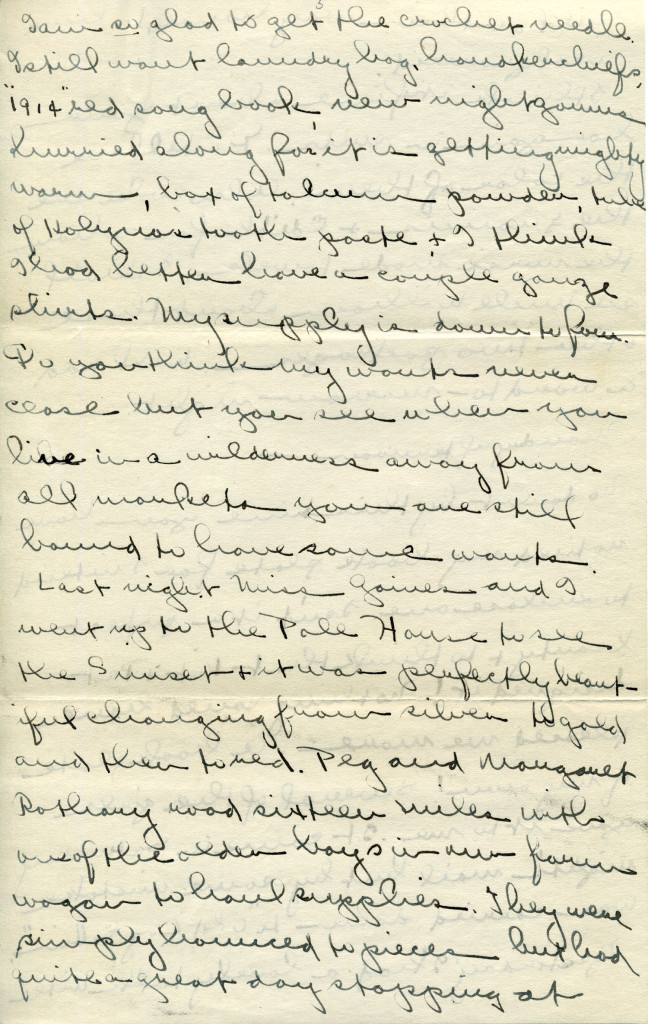 I am so glad to get the crochet needle.
I still want laundry bag, handkerchiefs,
"1914" red song book, new nightgowns
hurried along for it is getting mighty
warm, box of talcum powder, tube
of Kolynos tooth paste + I think
I had better have a couple gauze
shirts. My supply is down to four.
Do you think my wants never
cease but you see when you
live in a wilderness away from
all markets you are still
bound to have some wants.
Last night Miss Gaines and I
went up to the Pole House to see
the Sunset + it was perfectly beaut-
iful changing from silver to gold
and then to red. Peg and Margaret
Rothany road sixteen miles with
one of the older boys in our farm
wagon to haul supplies. They were
simply bounced to pieces but had
quite a great day stopping at